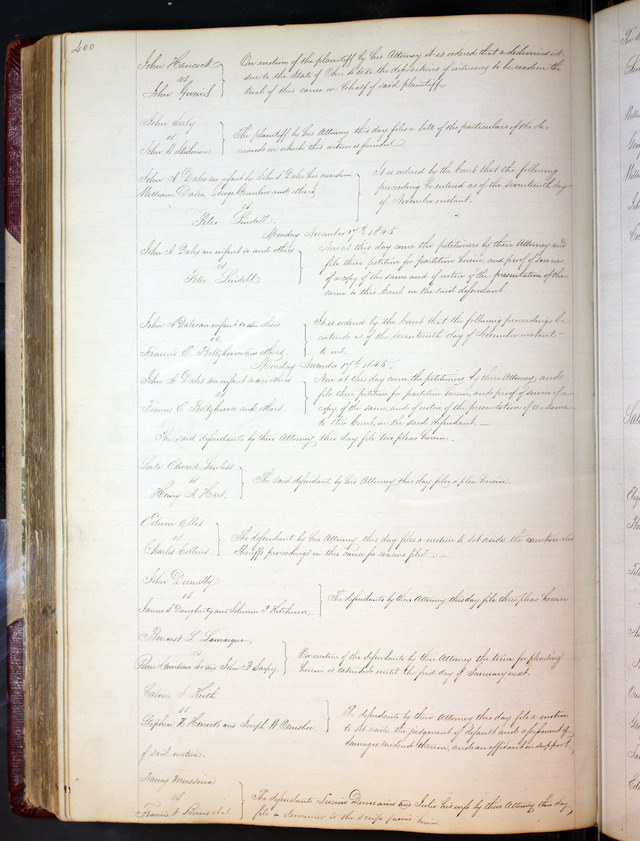 400
John Hancock
vs
John
On motion of the plaintiff by his Attorney it is ordered that a dedimus is-
sue to the State of Ohio to take the depositions of witnesses to be read on the
trial of this cause on behalf of said plaintiff
John
vs
John W
The plaintiff by his Attorney this day files a bill of the particulars of the de-
mands on which this action is founded
John A Dales an infant by John Dales his guardian
William Dales George and others
vs
Peter Lindell
It is ordered by the Court that the following
proceeding be entered as of the seventeenth day
of November instant.
Monday November 17th 1845
John A Dales an infant and others
vs
Peter Lindell
Now at this day come the petitioners by their Attorney and
file their petition for partition herein, and proof of service
of a copy of the same and of notice of the presentation of the
same to this Court on the said defendant
John A Dales an infant and others
vs
Francis E and others
It is ordered by the Court that the following proceedings be
entered as of the seventeenth day of November instant
to wit.
Monday November 17th 1845.
John A Dales an infant and others
vs
Francis E and others
Now at this day come the petitioners by their Attorney, and
file their petition for partition herein, and proof of service of a
copy of the same, and of notice of the presentation of the same
to this Court, on the said defendant.
The said defendants by their Attorney, this day file two pleas herein.
Edward
vs
Henry
The said defendant by his Attorney this day files a plea herein.
Edwin
vs
Charles Collins
The defendant by his Attorney this day files a motion to set aside the execution and
Sheriffs proceedings in this cause for reasons filed
John
vs
James Daugherty and Solomon P Ketchum
The defendants by their Attorney this day file their pleas herein
L
vs
and John B Sarpy
On motion of the defendants by their Attorney the time for pleading
herein is extended until the first day of January next.
S
vs
Stephen H and Joseph W
The defendants by their Attorney this day file a motion
to set aside the judgment of default and assessment of
damages rendered thereon, and an affidavit in support
of said motion.
Nancy
vs
Francis
The defendants and Julie his wife by their Attorney this day
file a demurrer to the herein